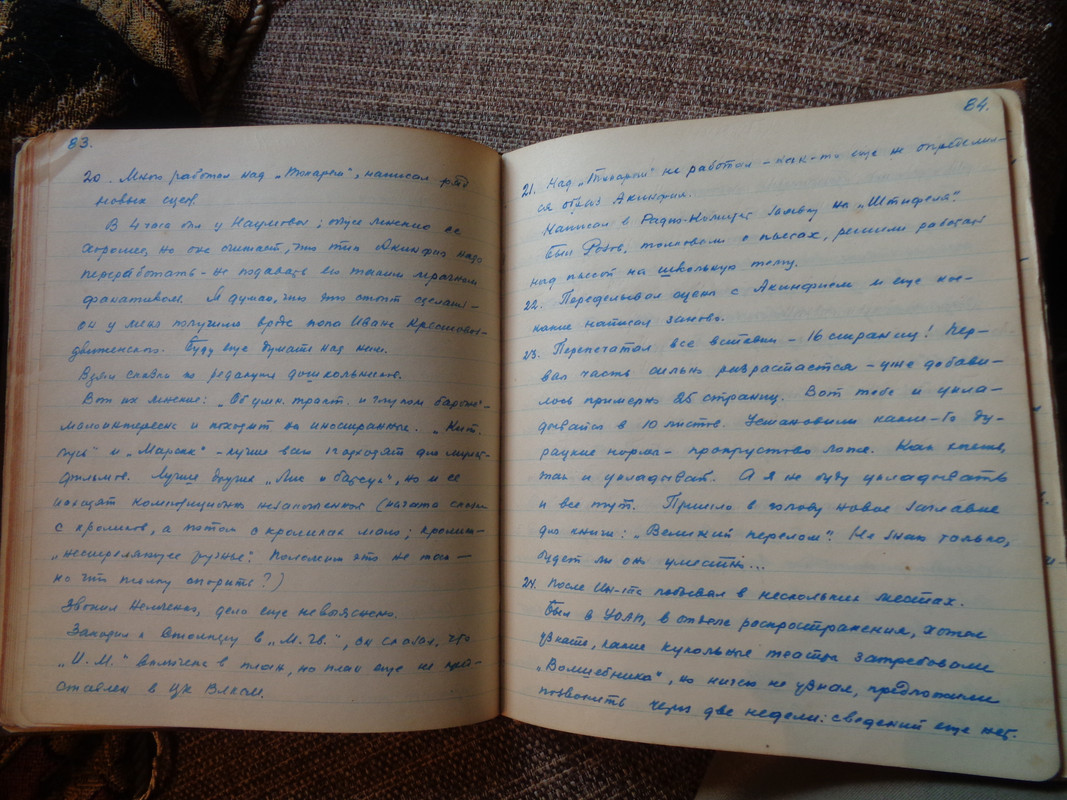 83.
20. Много работал над „Токарем", написал ряд
новых сцен.
В 4 часа был у Наумовой; общее мнение ее
хорошее, но она считает, что тип Акинфия надо
переработать – не подавать его таким мрачным
фанатиком. Я думаю, что это стоит сделать –
он у меня получился вроде попа Ивана Крестовоз-
движенского. Буду еще думать над ним.
Взял сказки из редакции дошкольников.
Вот их мнение: „Об умн. тракт. и глупом бароне" –
малоинтересна и походит на иностранные. „Кит.
гусь" и „Марсиан" – лучше всего подходят для мульт-
фильмов. Лучше других „Лис и барсук", но и ее
находят композиционно незаконченной (начата сказка
с кроликов, а потом о кроликах мало; кролик –
„нестреляющее ружье". Положим это не так –
но что толку спорить?)
Звонил Немченко, дело еще не выяснено.
Заходил к Стольнцу в „М. Гв.", он сказал, что
„И. М." включена в план, но план еще не пред-
ставлен в ЦК ВЛКСМ.
84.
21. Над „Токарем" не работал – как-то еще не определил-
ся образ Акинфия.
Написал в Радио-Комитет заявку на „Штифеля".
Был Розов, толковали о пьесах, решили работать
над пьесой на школьную тему.
22. Переделывал сцены с Акинфием и еще кое-
какие написал заново.
23. Перепечатал все вставки – 16 страниц! Пер-
вая часть сильно разрастается – уже добави-
лось примерно 25 страниц. Вот тебе и укла-
дывайся в 10 листов. Установили какие-то ду-
рацкие нормы – прокрустово ложе. Как хочешь,
так и укладывай. А я не буду укладывать
и все тут. Пришло в голову новое заглавие
для книги: „Великий перелом". Не знаю только,
будет ли оно уместно...
24. После Ин-та побывал в нескольких местах.
Был в УОАП, в отделе распространения, хотел
узнать, какие кукольные театры затребовали
„Волшебника", но ничего не узнал, предложили
позвонить через две недели: сведений еще нет.